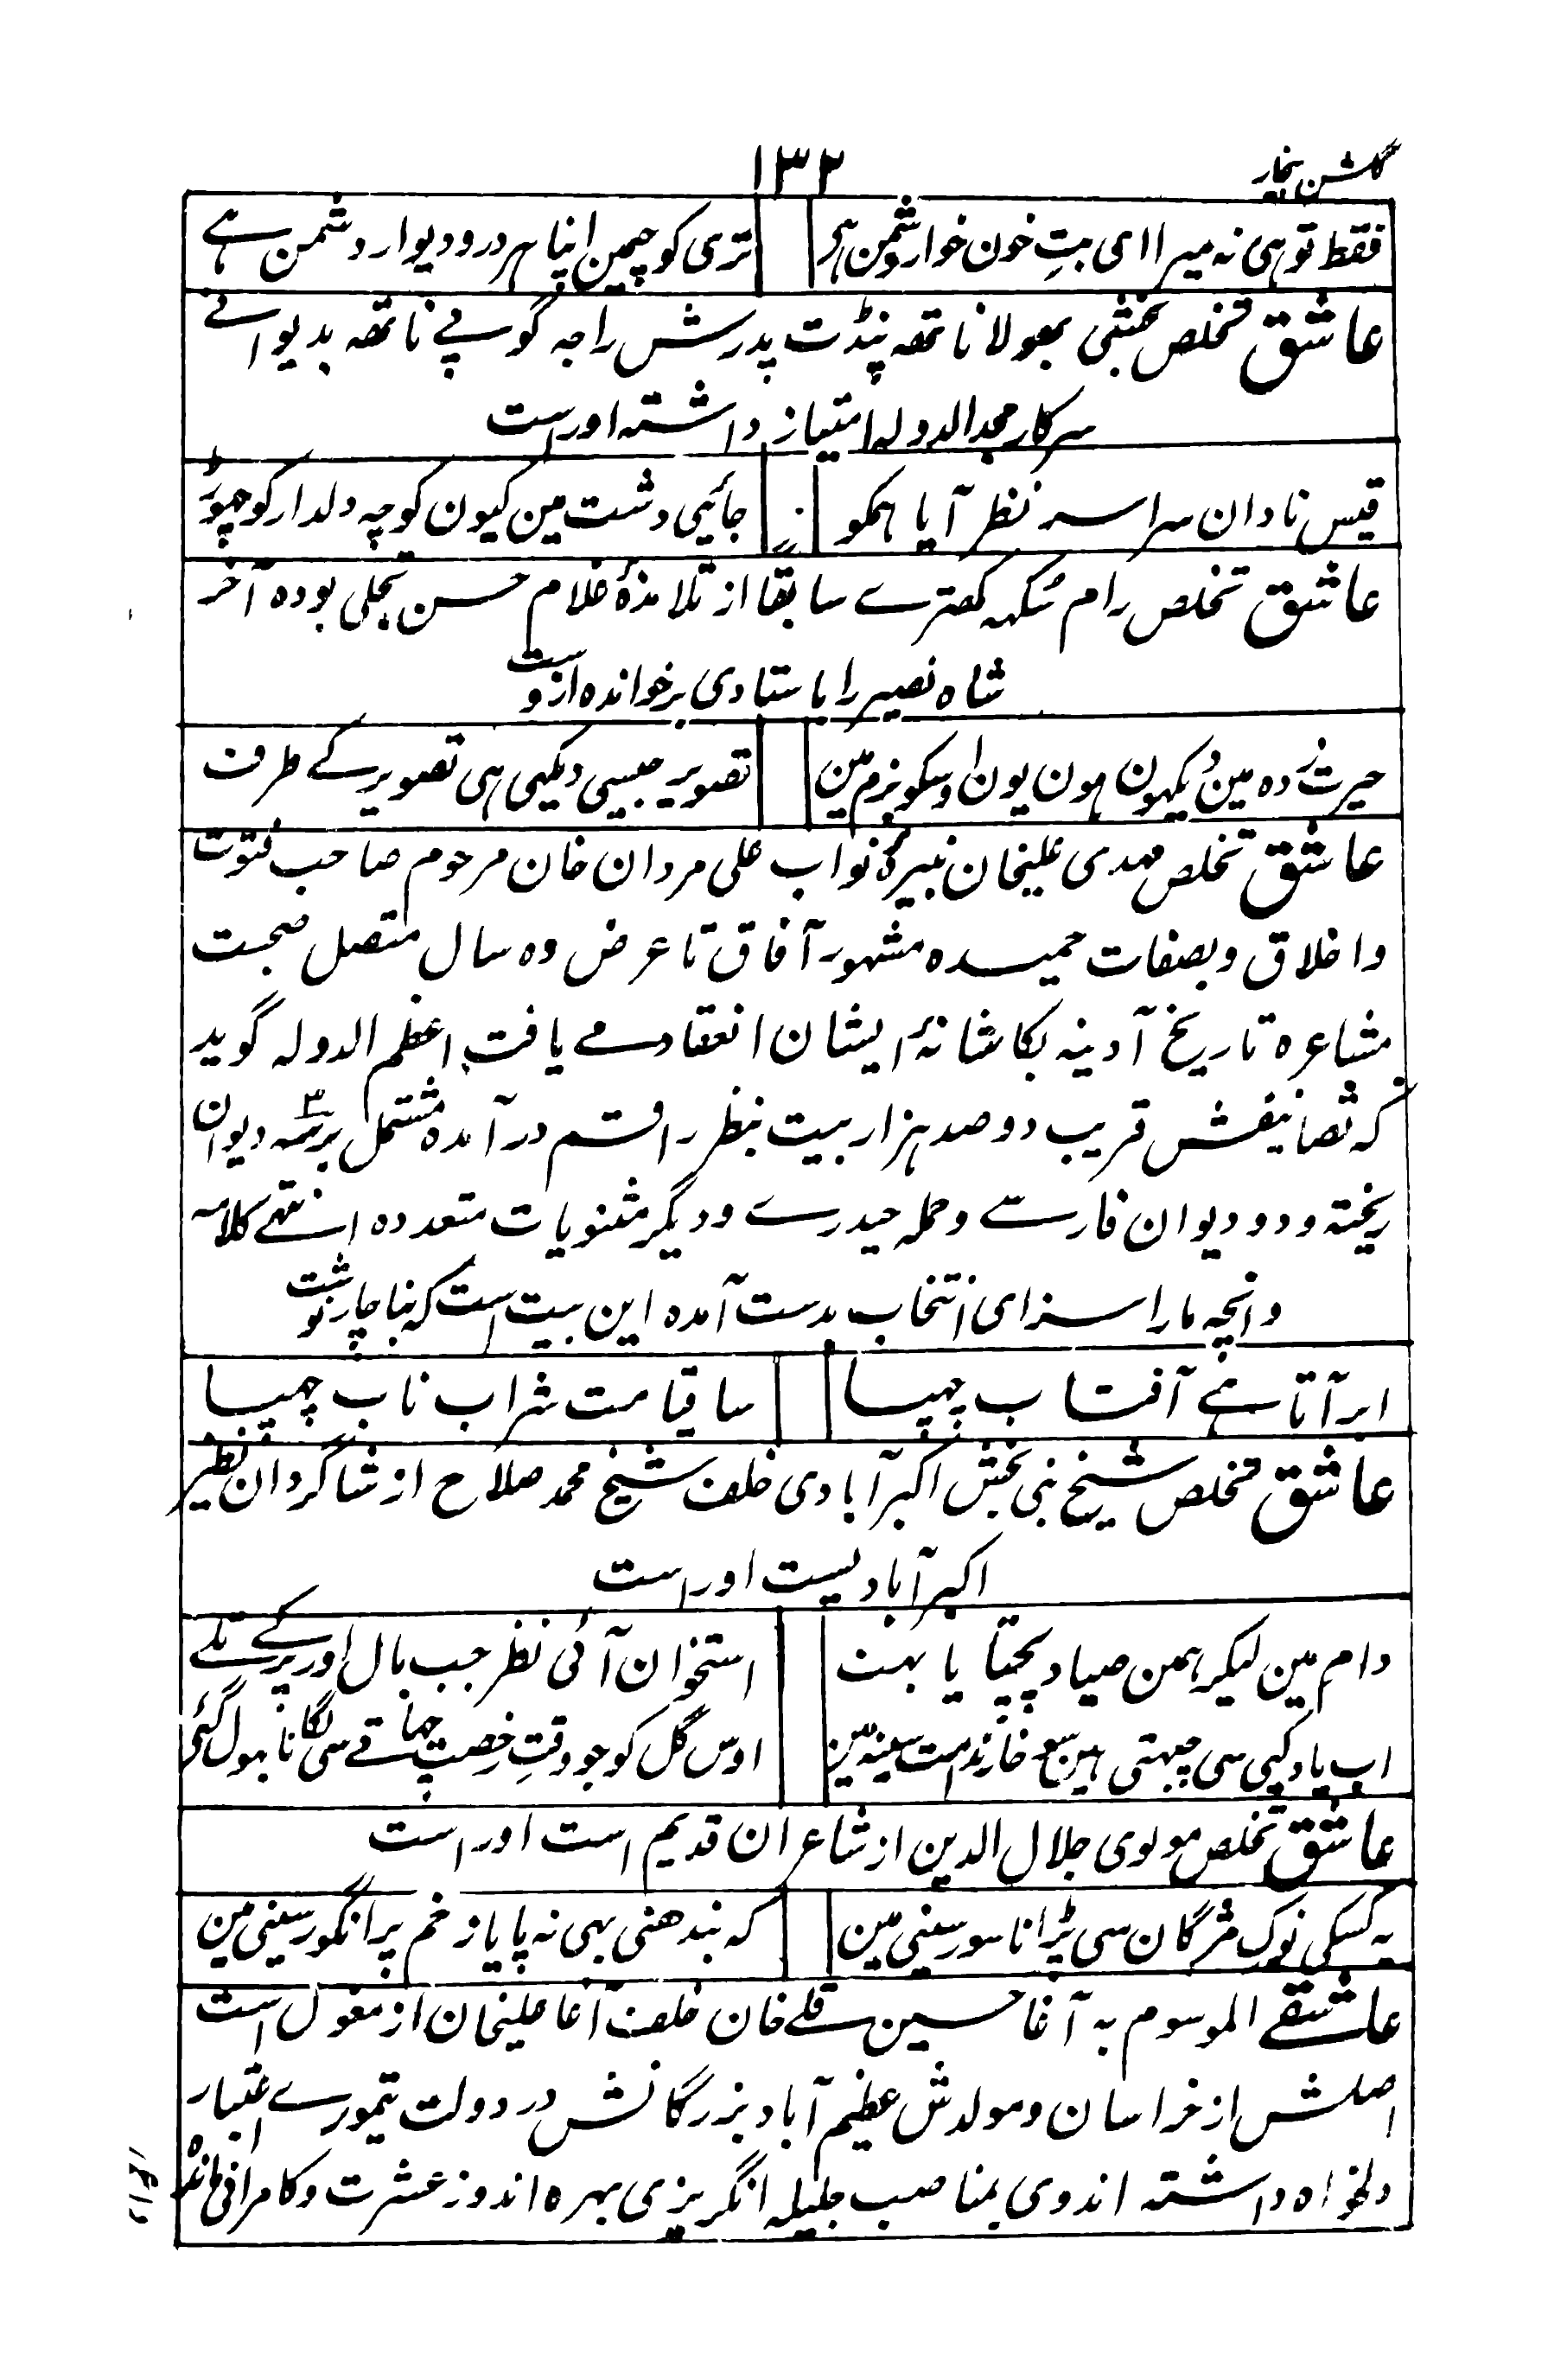 گلشن بیخار
۱۳۲
فقط تو ہی نہ میرا ای بتِ خون خوار دشمن ہی تری کوچمین اپنا ہر در و دیوار دشمن ہے
عاشق تخلص منشی بھولا ناتھہ پنڈت پدرش راجہ گوپی ناتھہ بدیوانے
سرکار مجد الدولہ امتیاز داشتہ اوراست
قیس نادان سراسر نظر آیا ہمکو جائیی دشت مین کیون کوچہ دلدار کو چھوڑ
عاشق تخلص رام سکہہ کھترے سابقا از تلامذۂ غلام حسن تجلی بودہ آخر
شاہ نصیر را باستادی برخواندہ ازوست
حیرت زدہ مین دیکہون ہون یون اوسکو بزم مین تصویر جیسی دیکہی ہی تصویر کے طرف
عاشق تخلص مہدی علیخان نبیرۂ نواب علی مردان خان مرحوم صاحب فتوت
واخلاق وبصفات حمیدہ مشہور آفاق تا عرض دہ سال متصل صحبت
مشاعرہ تاریخ آدینہ بکاشانۂ ایشان انعقاد مے یافت اعظم الدولہ گوید
کہ تصانیفش قریب دو صد ہزار بیت بنظر راقم در آمدہ مشتمل بر سہ دیوان
ریختہ و دو دیوان فارسے و حملہ حیدرے و دیگر مثنویات متعددہ انتہے کلامہ
وانچہ مارا سزای انتخاب بدست آمدہ این بیت است کہ بناچار نوشت
ابر آتا ہے آفتاب چہپا ساقیا مت شراب ناب چہپا
عاشق تخلص شیخ نبی بخش اکبرآبادی خلف شیخ محمد صلاح از شاگردان نظیر
اکبرآبادیست اوراست
دام مین لیکر ہمن صیاد پچتایا بہت استخوان آئی نظر جب بال اور پر کے تلے
اب یاد کیی سی چبہتی ہین سو خارِ ندامت سینہ مین اوس گل کو جو وقتِ رخصت چہاتے سی لگانا بہول گئی
عاشق تخلص مولوی جلال الدین از شاعران قدیم است اوراست
یہ کسکی نوک مژگان سی پڑا ناسور سینی مین کہ بندھنی بہی نہ پایا زخم پر انگور سینی مین
عاشقے الموسوم بہ آغا حسین قلے خان خلف آغا علیخان از مغول است
اصلش از خراسان و مولدش عظیم آباد بزرگانش در دولت تیمورے اعتبار
دلخواہ داشتہ اند وی بمناصب جلیلہ انگریزی بہرہ اندوز عشرت وکامرانی